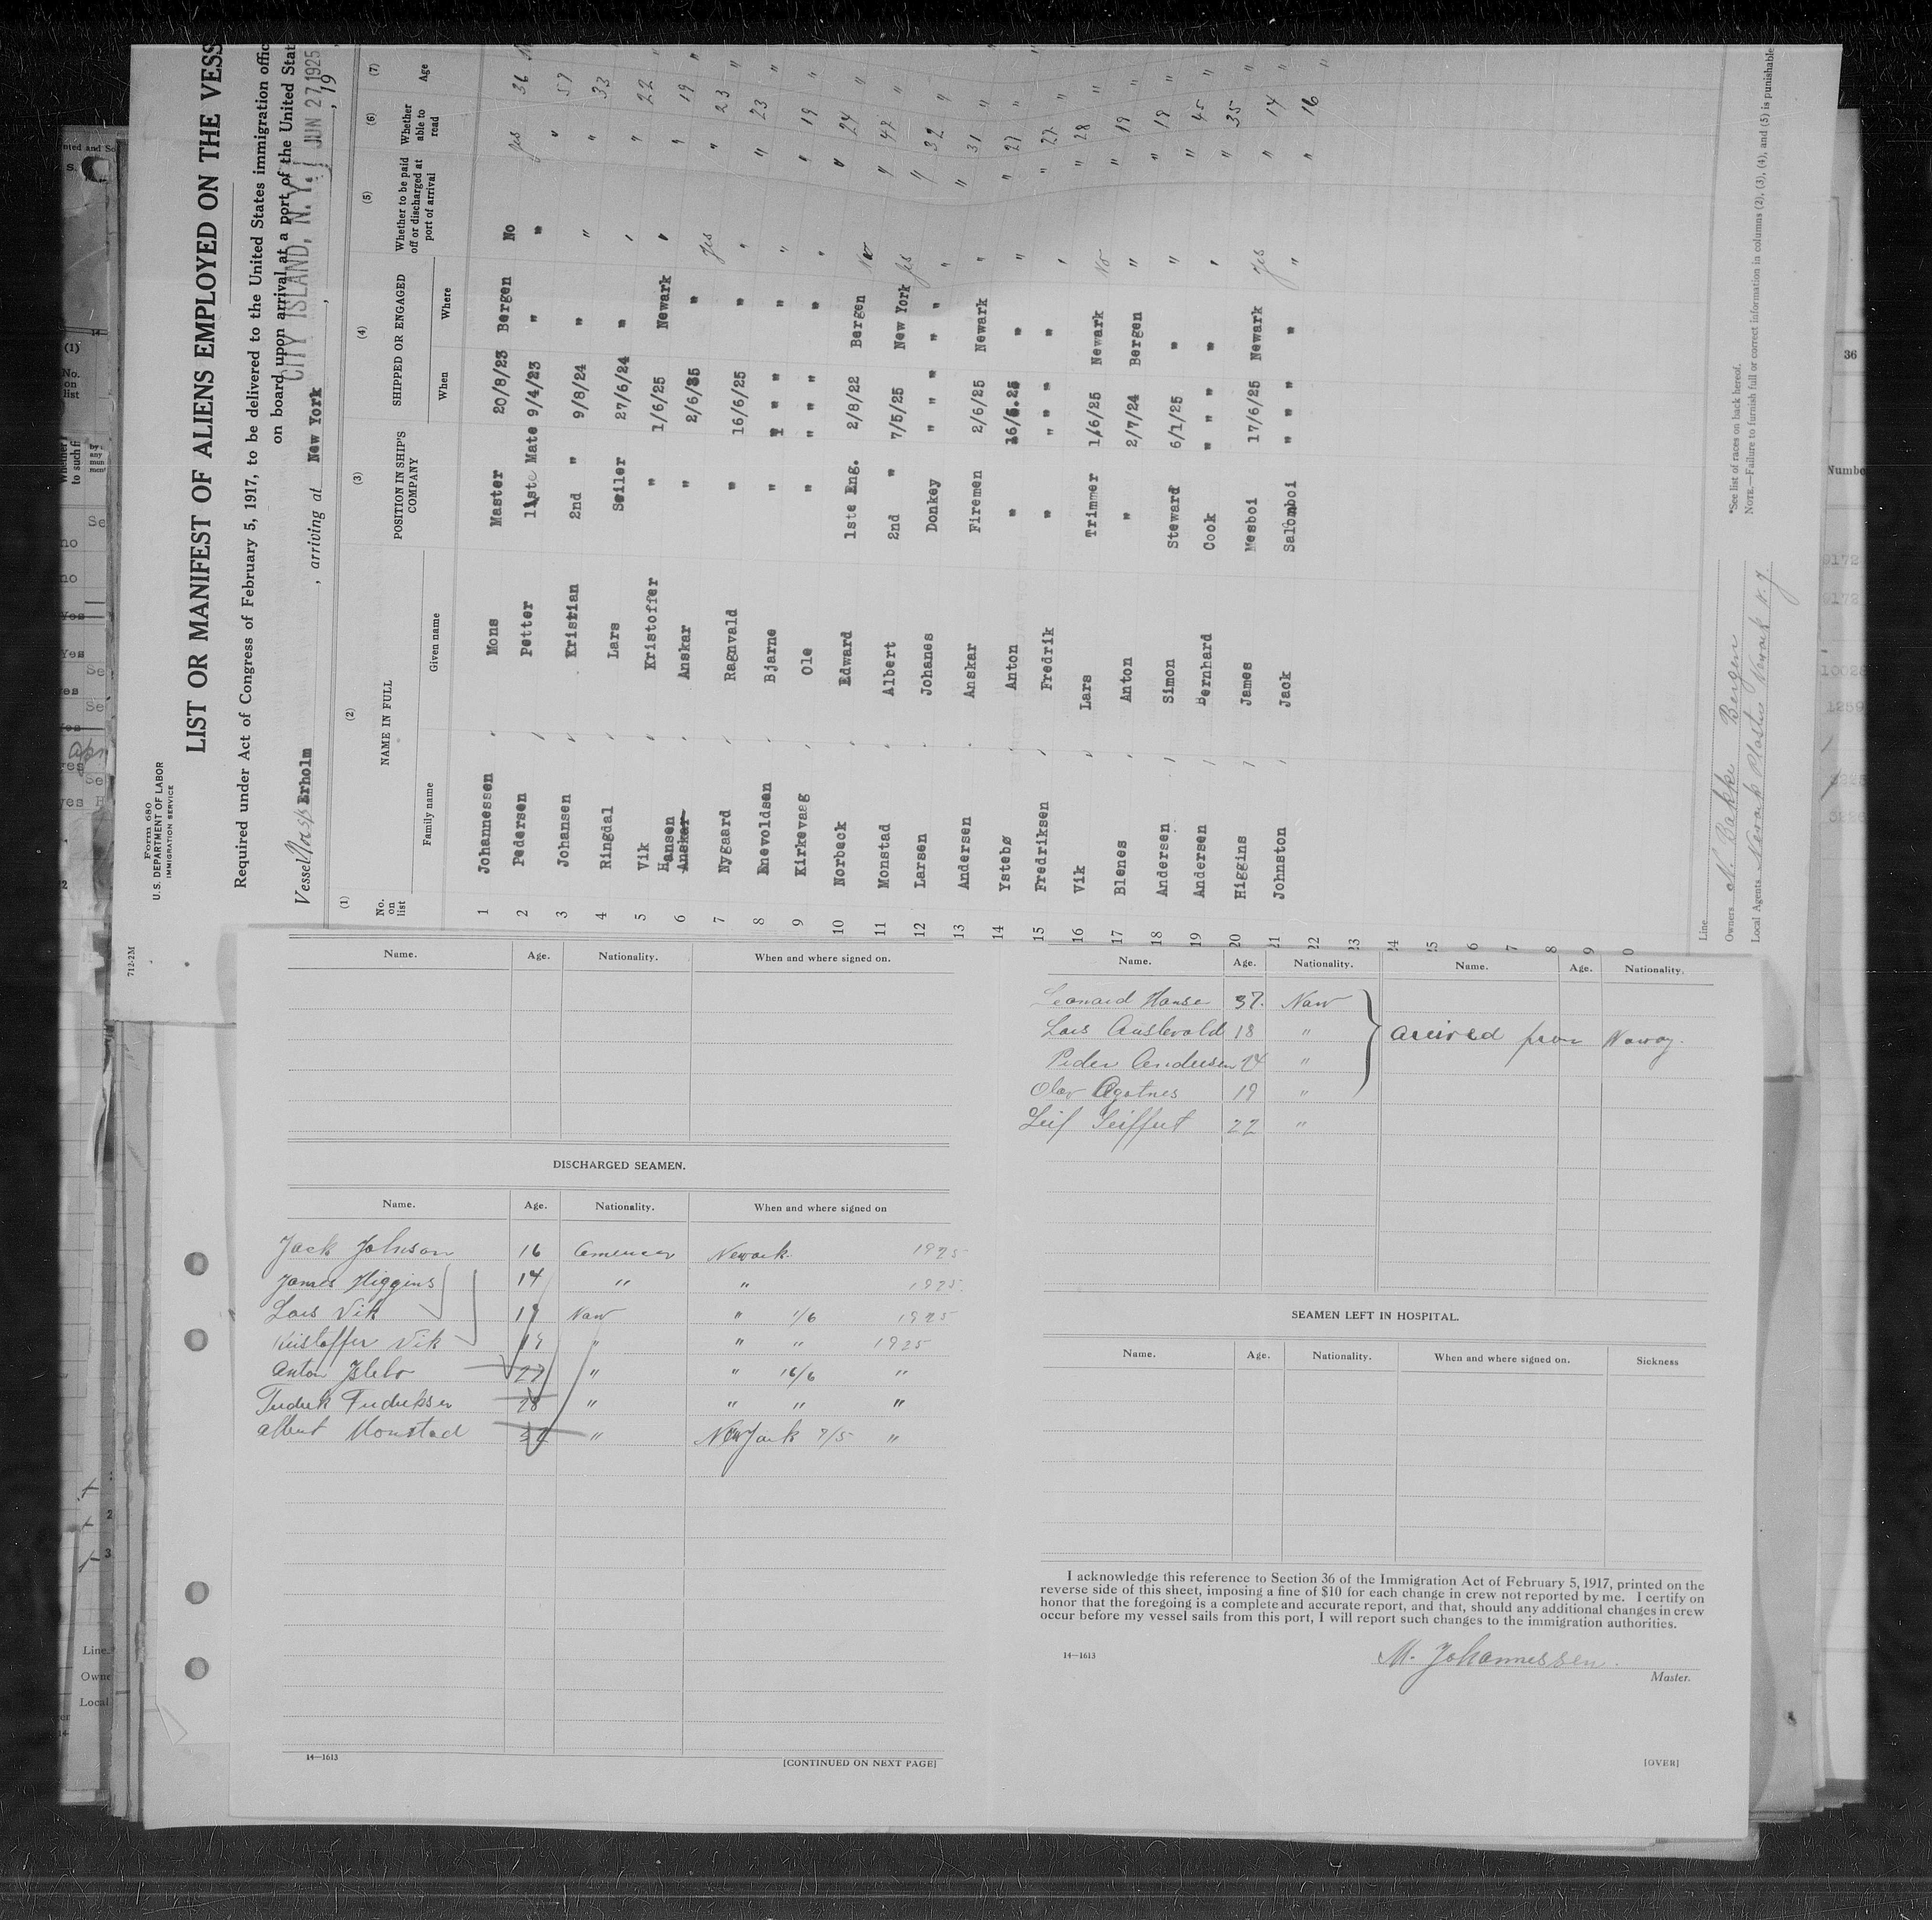 Form 680
U.S. DEPARTMENT OF LABOR
IMMIGRATION SERVICE
712-2M
LIST OR MANIFEST OF ALIENS EMPLOYED ON THE VESS
Required under Act of Congress of February 5, 1917, to be delivered to the United States immigration offic
on board upon arrival at a port of the United Stat
CITY ISLAND, N.Y. JUN 27 1925
Vessel Nor s/s Erholm, arriving at New York, 19
(1) (2) (3) (4) (5) (6) (7)
No. on list NAME IN FULL POSITION IN SHIP'S COMPANY SHIPPED OR ENGAGED Whether to be paid off or discharged at port of arrival Whether able to read Age
Family name Given name When Where
1 Johannessen Mons Master 20/8/23 Bergen No Yes 36
2 Pedersen Petter 1ste Mate 9/4/23 " " " 57
3 Johansen Kristian 2nd " 9/8/24 " " " 33
4 Ringdal Lars Seiler 27/6/24 " " " 22
5 Vik Kristoffer " 1/6/25 Newark " " 19
6 Hansen Anskar Anskar " 2/6/25 " Yes " 23
7 Nygaard Ragnvald " 16/6/25 " " " 23
8 Enevoldsen Bjarne " " " " " " " 19
9 Kirkevaag Ole " " " " " " " 24
10 Norbeck Edward 1ste Eng. 2/8/22 Bergen No " 47
11 Monstad Albert 2nd " 7/5/25 New York Yes " 32
12 Larsen Johanes Donkey " " " " " " 31
13 Andersen Anskar Firemen 2/6/25 Newark " " 27
14 Ystebø Anton " 16/6.25 " " " 27
15 Fredriksen Fredrik " " " " " " " 28
16 Vik Lars Trimmer 1/6/25 Newark No " 19
17 Blenes Anton " 2/7/24 Bergen " " 19
18 Andersen Simon Steward 6/1/25 " " " 45
19 Andersen Bernhard Cook " " " " " " 35
20 Higgins James Mesboi 17/6/25 Newark Yes " 14
21 Johnston Jack Salomboi " " " " " " 16
22
23
24
25
6
7
8
9
0
Line
Owners M. Bakke Bergen
Local Agents Newark Plaster Newark N.J.
*See list of races on back hereof.
NOTE.—Failure to furnish full or correct information in columns (2), (3), (4), and (5) is punishable
Name. Age. Nationality. When and where signed on.
DISCHARGED SEAMEN.
Name. Age. Nationality. When and where signed on
Jack Johnson 16 American Newark. 1925
James Higgins 14 " " 1925
Lars Vik 19 Naw " 1/6 1925
Kristoffer Vik 19 " " " 1925
Anton Istebo 27 " " 16/6 "
Fredrik Fredriksen 28 " " " "
Albert Monstad " New York 7/5 "
14—1613
[CONTINUED ON NEXT PAGE]
Name. Age. Nationality. Name. Age. Nationality.
Leonard Hanse 37. Naw
Lars Austevold 18 " arrived from Noway.
Peder Andersen 24 "
Olav Agotnes 19 "
Leif Seiffert 22 "
SEAMEN LEFT IN HOSPITAL.
Name. Age. Nationality. When and where signed on. Sickness
I acknowledge this reference to Section 36 of the Immigration Act of February 5, 1917, printed on the
reverse side of this sheet, imposing a fine of $10 for each change in crew not reported by me. I certify on
honor that the foregoing is a complete and accurate report, and that, should any additional changes in crew
occur before my vessel sails from this port, I will report such changes to the immigration authorities.
14—1613
M. Johannessen.
Master.
[OVER]
36
Numbe
9172
9172
10028
1259
Line.
Owne
Local